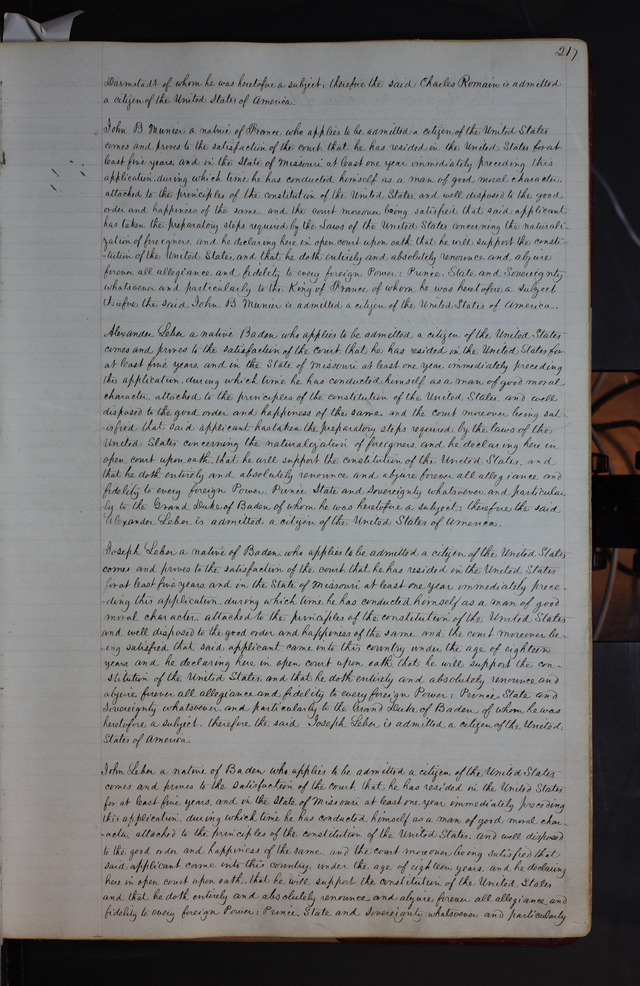 217
Darmstadt of whom he was heretofore a subject, therefore the said Charles Romain is admitted
a citizen of the United States of America.
John B Munier a native of France, who applies to be admitted a citizen of the United States
comes and proves to the satisfaction of the court that he has resided in the United States for at
least five years, and in the State of Missouri at least one year immediately preceding this
application, during which time he has conducted himself as a man of good moral character,
attached to the principles of the constitution of the United States, and well disposed to the good
order and happiness of the same, and the court moreover being satisfied that said applicant,
has taken the preparatory steps required by the laws of the United States concerning the naturali-
zation of foreigners, and he declaring here in open court upon oath that he will support the consti-
tution of the United States, and that he doth entirely and absolutely renounce and abjure
forever all allegiance and fidelity to every foreign Power, Prince, State and Sovereignty
whatsoever and particularly to the King of France of whom he was heretofore a subject
therefore the said John B Munier is admitted a citizen of the United States of America.
Alexander Leber a native Baden who applies to be admitted a citizen of the United States
comes and proves to the satisfaction of the court, that he has resided in the United States for
at least five years, and in the State of Missouri at least one year immediately preceding
this application, during which time he has conducted himself as a man of good moral
character, attached to the principles of the constitution of the United States, and well
disposed to the good order and happiness of the same, and the court moreover being sat
isfied that said applicant has taken the preparatory steps required by the laws of the
United States concerning the naturalization of foreigners, and he declaring here in
open court upon oath, that he will support the constitution of the United States, and
that he doth entirely and absolutely renounce and abjure forever all allegiance and
fidelity to every foreign Power, Prince State and Sovereignty whatsoever and particular
ly to the Grand Duke of Baden of whom he was heretofore a subject, therefore the said
Alexander Leber is admitted a citizen of the United States of America.
Joseph Leber a native of Baden who applies to be admitted a citizen of the United States
comes and proves to the satisfaction of the court, that he has resided in the United States
for at least five years, and in the State of Missouri at least one year immediately prece-
ding this application, during which time he has conducted himself as a man of good
moral character, attached to the principles of the constitution of the United States
and well disposed to the good order and happiness of the same and the court moreover be-
ing satisfied that said applicant came into this country under the age of eighteen
years and he declaring here in open court upon oath that he will support the con-
stitution of the United States, and that he doth entirely and absolutely renounce and
abjure forever all allegiance and fidelity to every foreign Power, Prince State and
Sovereignty whatsoever, and particularly to the Grand Duke of Baden of whom he was
heretofore a subject, therefore the said Joseph Leber is admitted a citizen of the United
States of America.
John Leber a native of Baden who applies to be admitted a citizen of the United States
comes and proves to the satisfaction of the court, that he has resided in the United States
for at least five years, and in the State of Missouri at least one year immediately preceding
this application, during which time he has conducted himself as a man of good moral char-
acter, attached to the principles of the constitution of the United States, and well disposed
to the good order and happiness of the same, and the court moreover being satisfied that
said applicant came into this country, under the age of eighteen years, and he declaring
here in open court upon oath, that he will support the constitution of the United States
and that he doth entirely and absolutely renounce and abjure forever all allegiance and
fidelity to every foreign Power, Prince, State and Sovereignty whatsoever and particularly